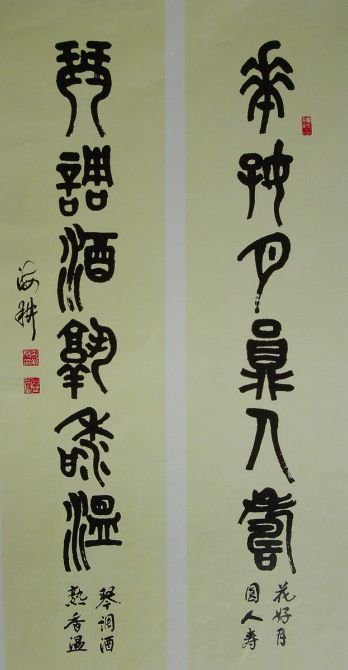 華好月員人壽
花好月
圓人寿
琴調酒孰香溫
琴調酒
熟香温
海耕